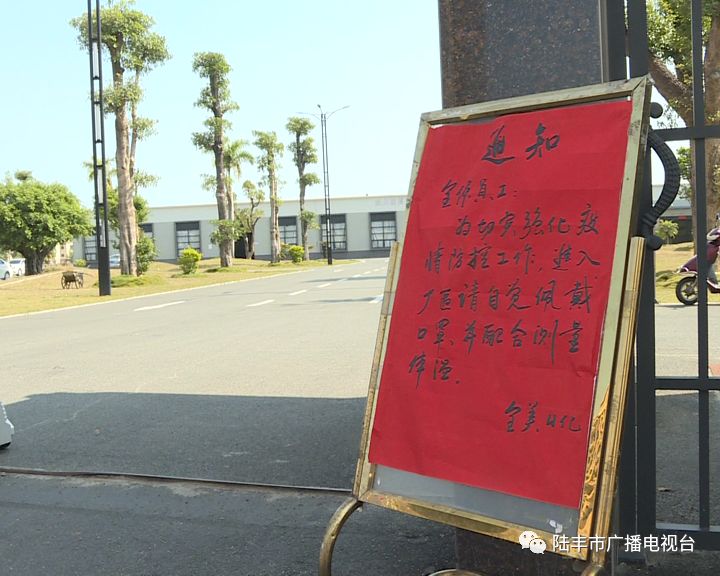 通知
全体员工:
为切实强化疫
情防控工作,进入
厂区请自觉佩戴
口罩,并配合测量
体温。
全美日化
陆丰市广播电视台